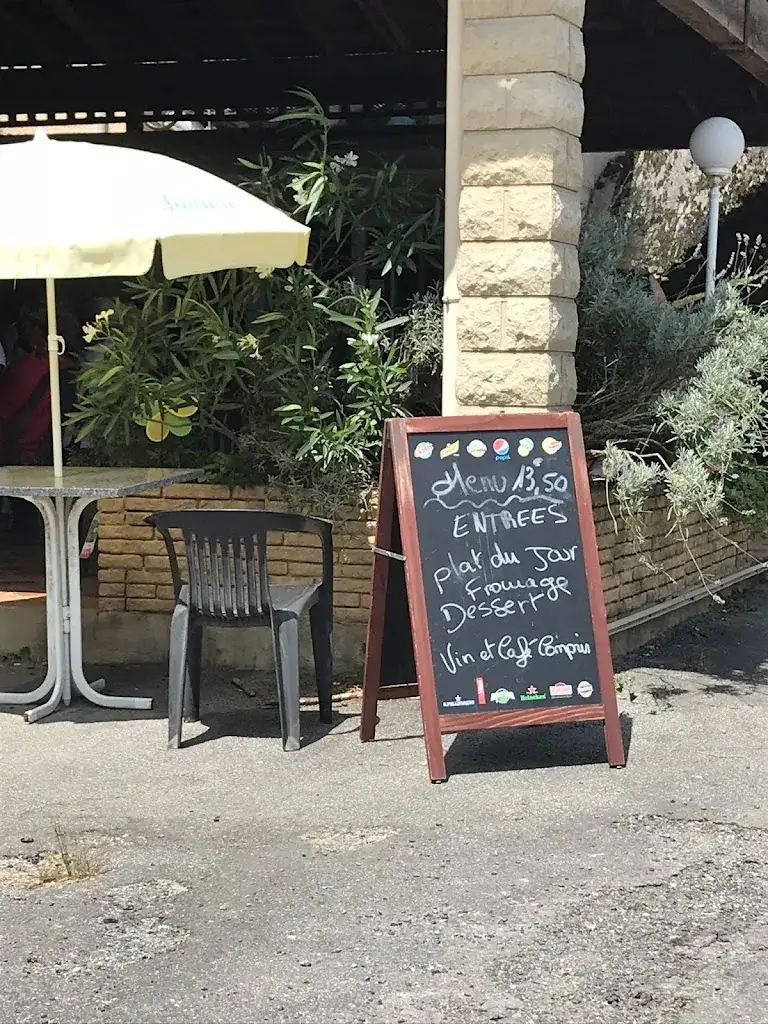 pepsi
Menu 13€,50
ENTREES
Plat du Jour
Fromage
Dessert
Vin et Café Compris
Heineken